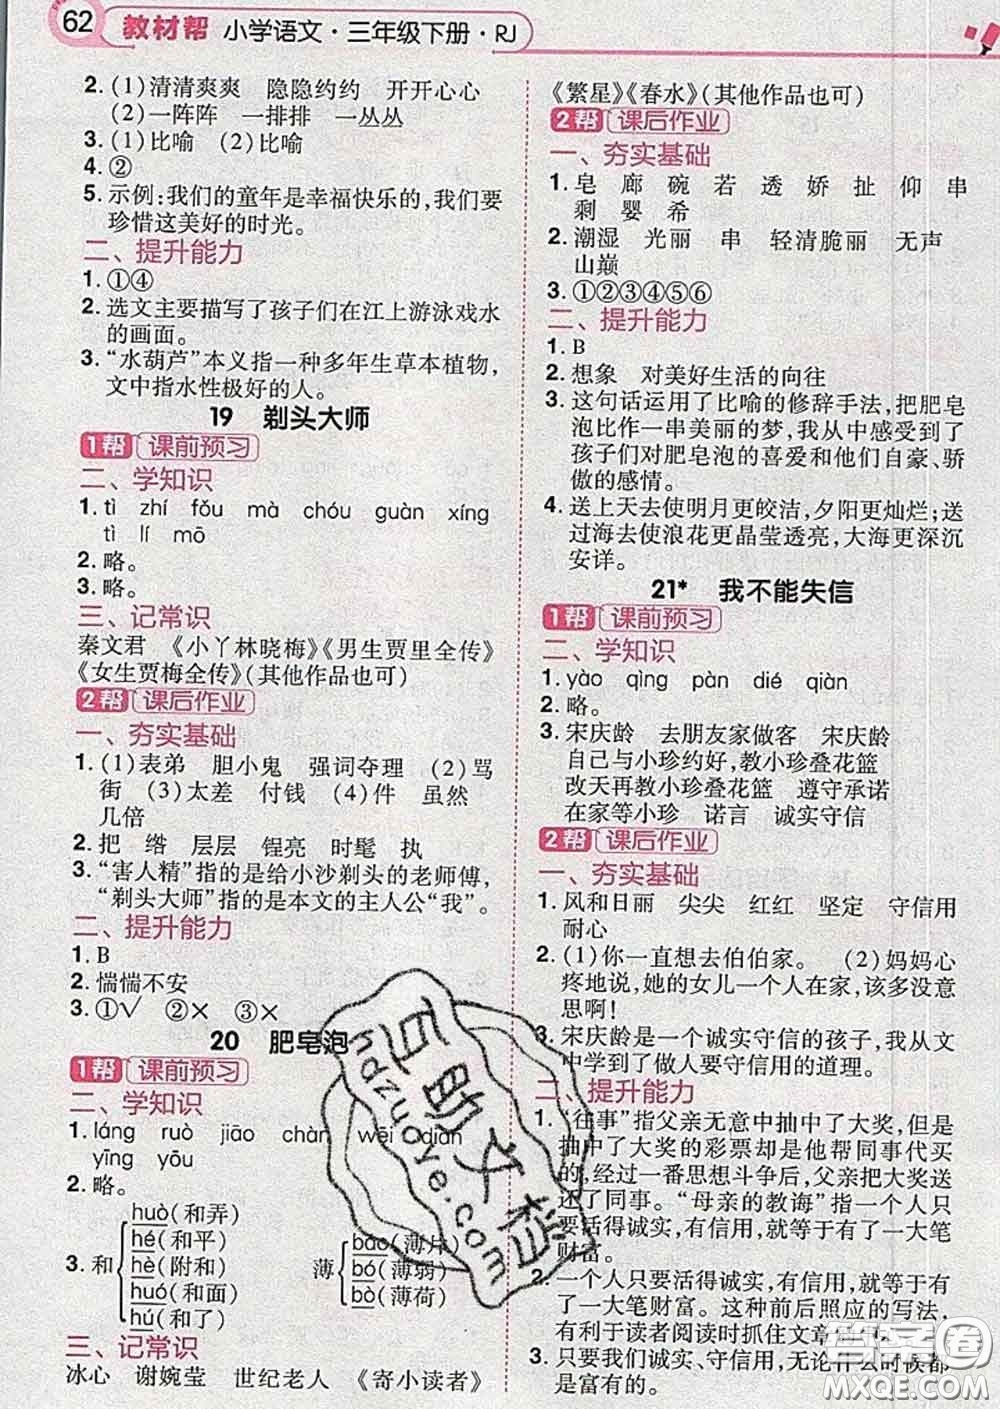 62 教材帮 小学语文·三年级下册·RJ
2. (1)清清爽爽 隐隐约约 开开心心
(2)一阵阵 一排排 一丛丛
3. (1)比喻 (2)比喻
4. ②
5. 示例:我们的童年是幸福快乐的,我们要
珍惜这美好的时光。
二、提升能力
1. ①④
2. 选文主要描写了孩子们在江上游泳戏水
的画面。
3. “水葫芦”本义指一种多年生草本植物,
文中指水性极好的人。
19 剃头大师
1帮 课前预习
二、学知识
1. tì zhí fǒu mà chóu guàn xíng
tì lí mō
2. 略。
3. 略。
三、记常识
秦文君 《小丫林晓梅》《男生贾里全传》
《女生贾梅全传》(其他作品也可)
2帮 课后作业
一、夯实基础
1. (1)表弟 胆小鬼 强词夺理 (2)骂
街 (3)太差 付钱 (4)件 虽然
几倍
2. 把 绺 层层 锃亮 时髦 执
3. “害人精”指的是给小沙剃头的老师傅,
“剃头大师”指的是本文的主人公“我”。
二、提升能力
1. B
2. 惴惴不安
3. ①√ ②× ③×
20 肥皂泡
1帮 课前预习
二、学知识
1. láng ruò jiāo chàn wēi
yīng yōu
2. 略。
3. 和 huò(和弄)
hé(和平)
hè(附和)
huó(和面)
hú(和了)
薄 báo(薄片)
bó(薄弱)
bò(薄荷)
三、记常识
冰心 谢婉莹 世纪老人 《寄小读者》
《繁星》《春水》(其他作品也可)
2帮 课后作业
一、夯实基础
1. 皂 廊 碗 若 透 娇 扯 仰 串
剩 婴 希
2. 潮湿 光丽 串 轻清脆丽 无声
山巅
3. ①②③④⑤⑥
二、提升能力
1. B
2. 想象 对美好生活的向往
3. 这句话运用了比喻的修辞手法,把肥皂
泡比作一串美丽的梦,我从中感受到了
孩子们对肥皂泡的喜爱和他们自豪、骄
傲的感情。
4. 送上天去使明月更皎洁,夕阳更灿烂;送
过海去使浪花更晶莹透亮,大海更深沉
安详。
21* 我不能失信
1帮 课前预习
二、学知识
1. yào qìng pàn dié qiàn
2. 略。
3. 宋庆龄 去朋友家做客 宋庆龄
自己与小珍约好,教小珍叠花篮
改天再教小珍叠花篮 遵守承诺
在家等小珍 诺言 诚实守信
2帮 课后作业
一、夯实基础
1. 风和日丽 尖尖 红红 坚定 守信用
耐心
2. (1)你一直想去伯伯家。 (2)妈妈心
疼地说,她的女儿一个人在家,该多没意
思啊!
3. 宋庆龄是一个诚实守信的孩子,我从文
中学到了做人要守信用的道理。
二、提升能力
1. “往事”指父亲无意中抽中了大奖,但是
抽中了大奖的彩票却是他帮同事代买
的,经过一番思想斗争后,父亲把大奖还
还了同事。“母亲的教诲”指一个人只
要活得诚实,有信用,就等于有了一大笔
财富。
2. 一个人只要活得诚实,有信用,就等于有
了一大笔财富。这种前后照应的写法,
有利于读者阅读时抓住文章
3. 只要我们诚实有信用,无论什么时候都
是富有的。
百助文档
hdzuoye.com
答案圈
MXQE.COM